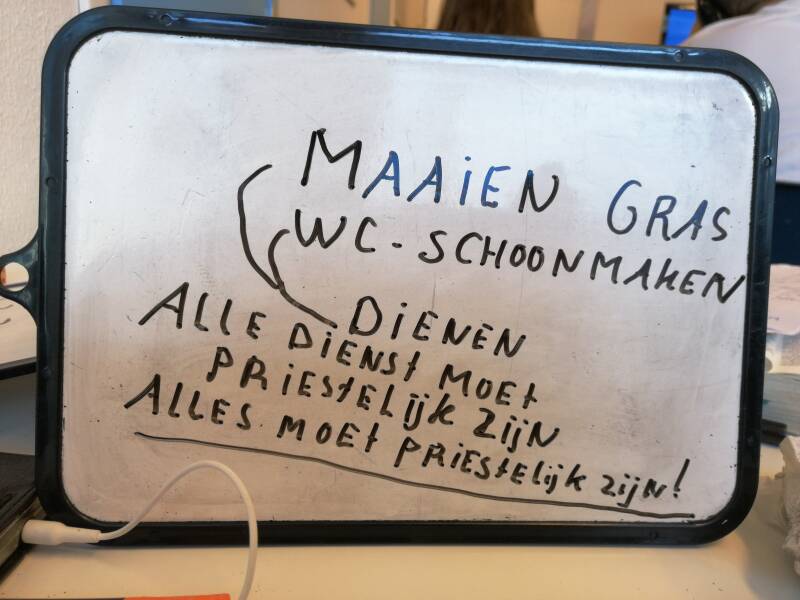 MAAiEN GRAS
WC-SCHOONMAKEN
DiENEN
ALLE DiENST MOET
PRiESTELijK ZijN
ALLES MOET PRiESTELijK ZijN!